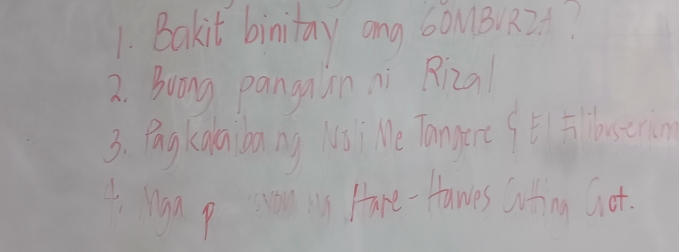 1. Bakit binitay ang GOMBURZA?
2. Buong pangalan ni Rizal
3. Pagkakaiba ng Noli Me Tangere & El Filibusterism
4. Mga ng Hare-Hawes Cutting Act.